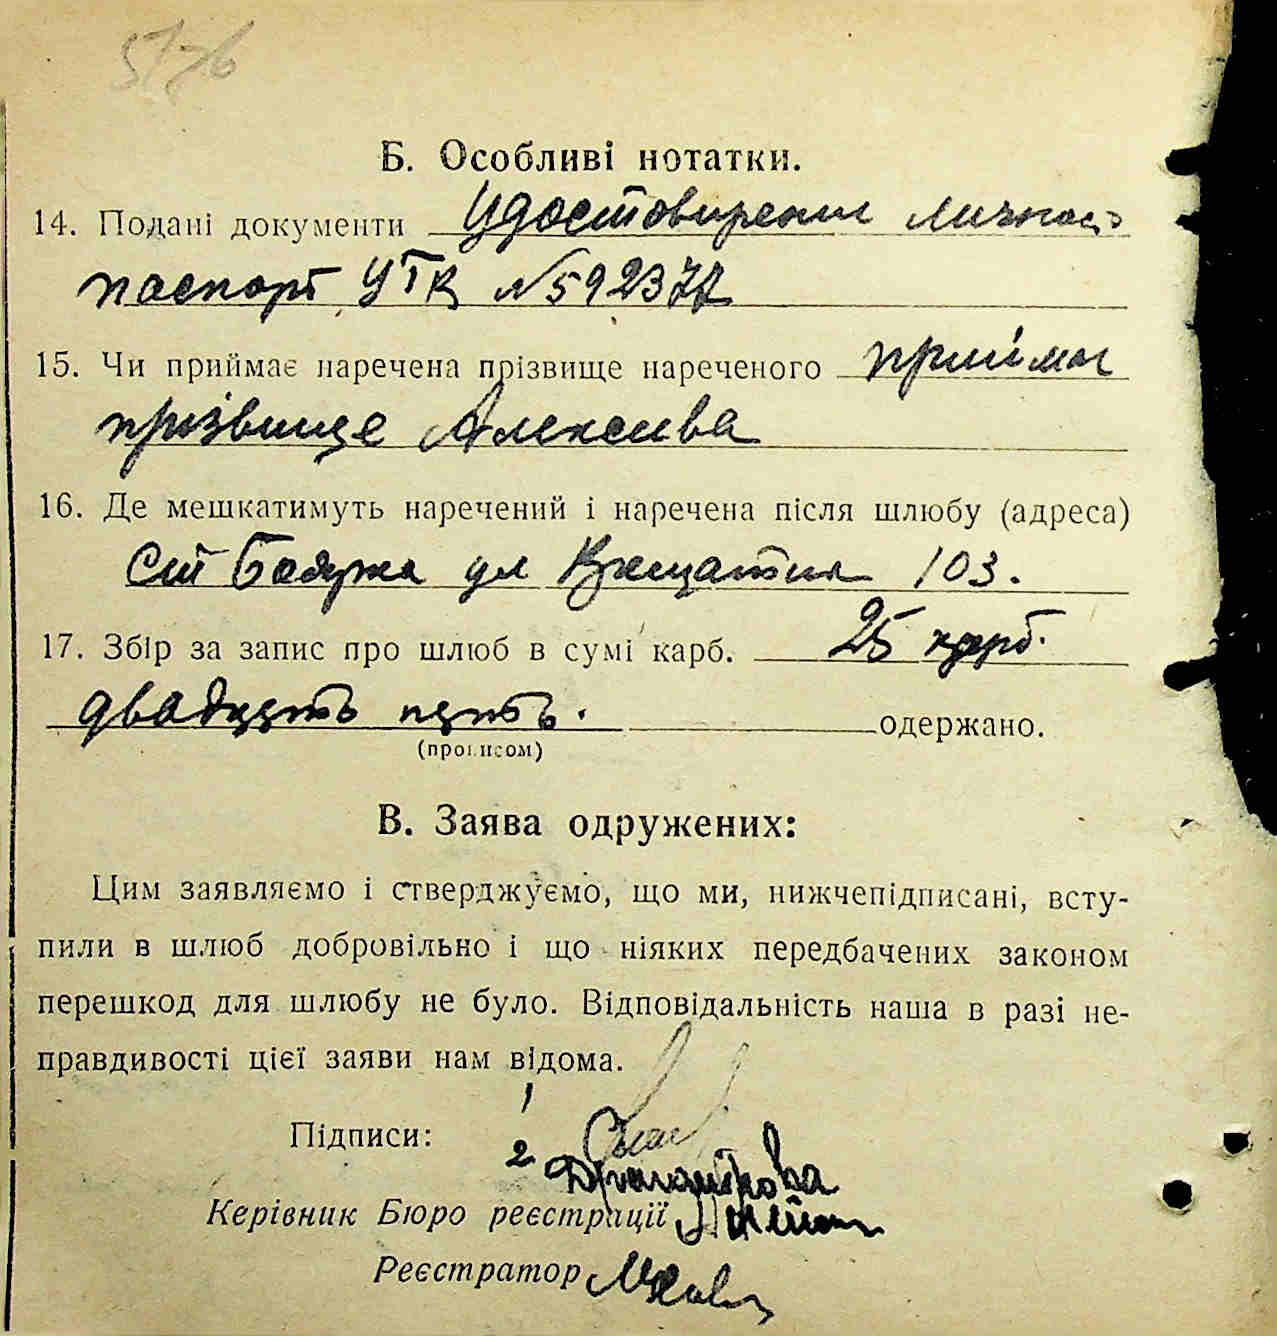 5776
Б. Особливі нотатки.
14. Подані документи Удостовирении личнос
паспорт УТК №592377
15. Чи приймає наречена прізвище нареченого приймає
прізвище Алексива
16. Де мешкатимуть наречений і наречена після шлюбу (адреса)
ст Боярка ул Хрещатик 103.
17. Збір за запис про шлюб в сумі карб. 25 карб.
двадцять пять. одержано.
(прописом)
В. Заява одружених:
Цим заявляємо і стверджуємо, що ми, нижчепідписані, всту-
пили в шлюб добровільно і що ніяких передбачених законом
перешкод для шлюбу не було. Відповідальність наша в разі не-
правдивості цієї заяви нам відома.
Підписи: 1
2
Керівник Бюро реєстрації
Реєстратор